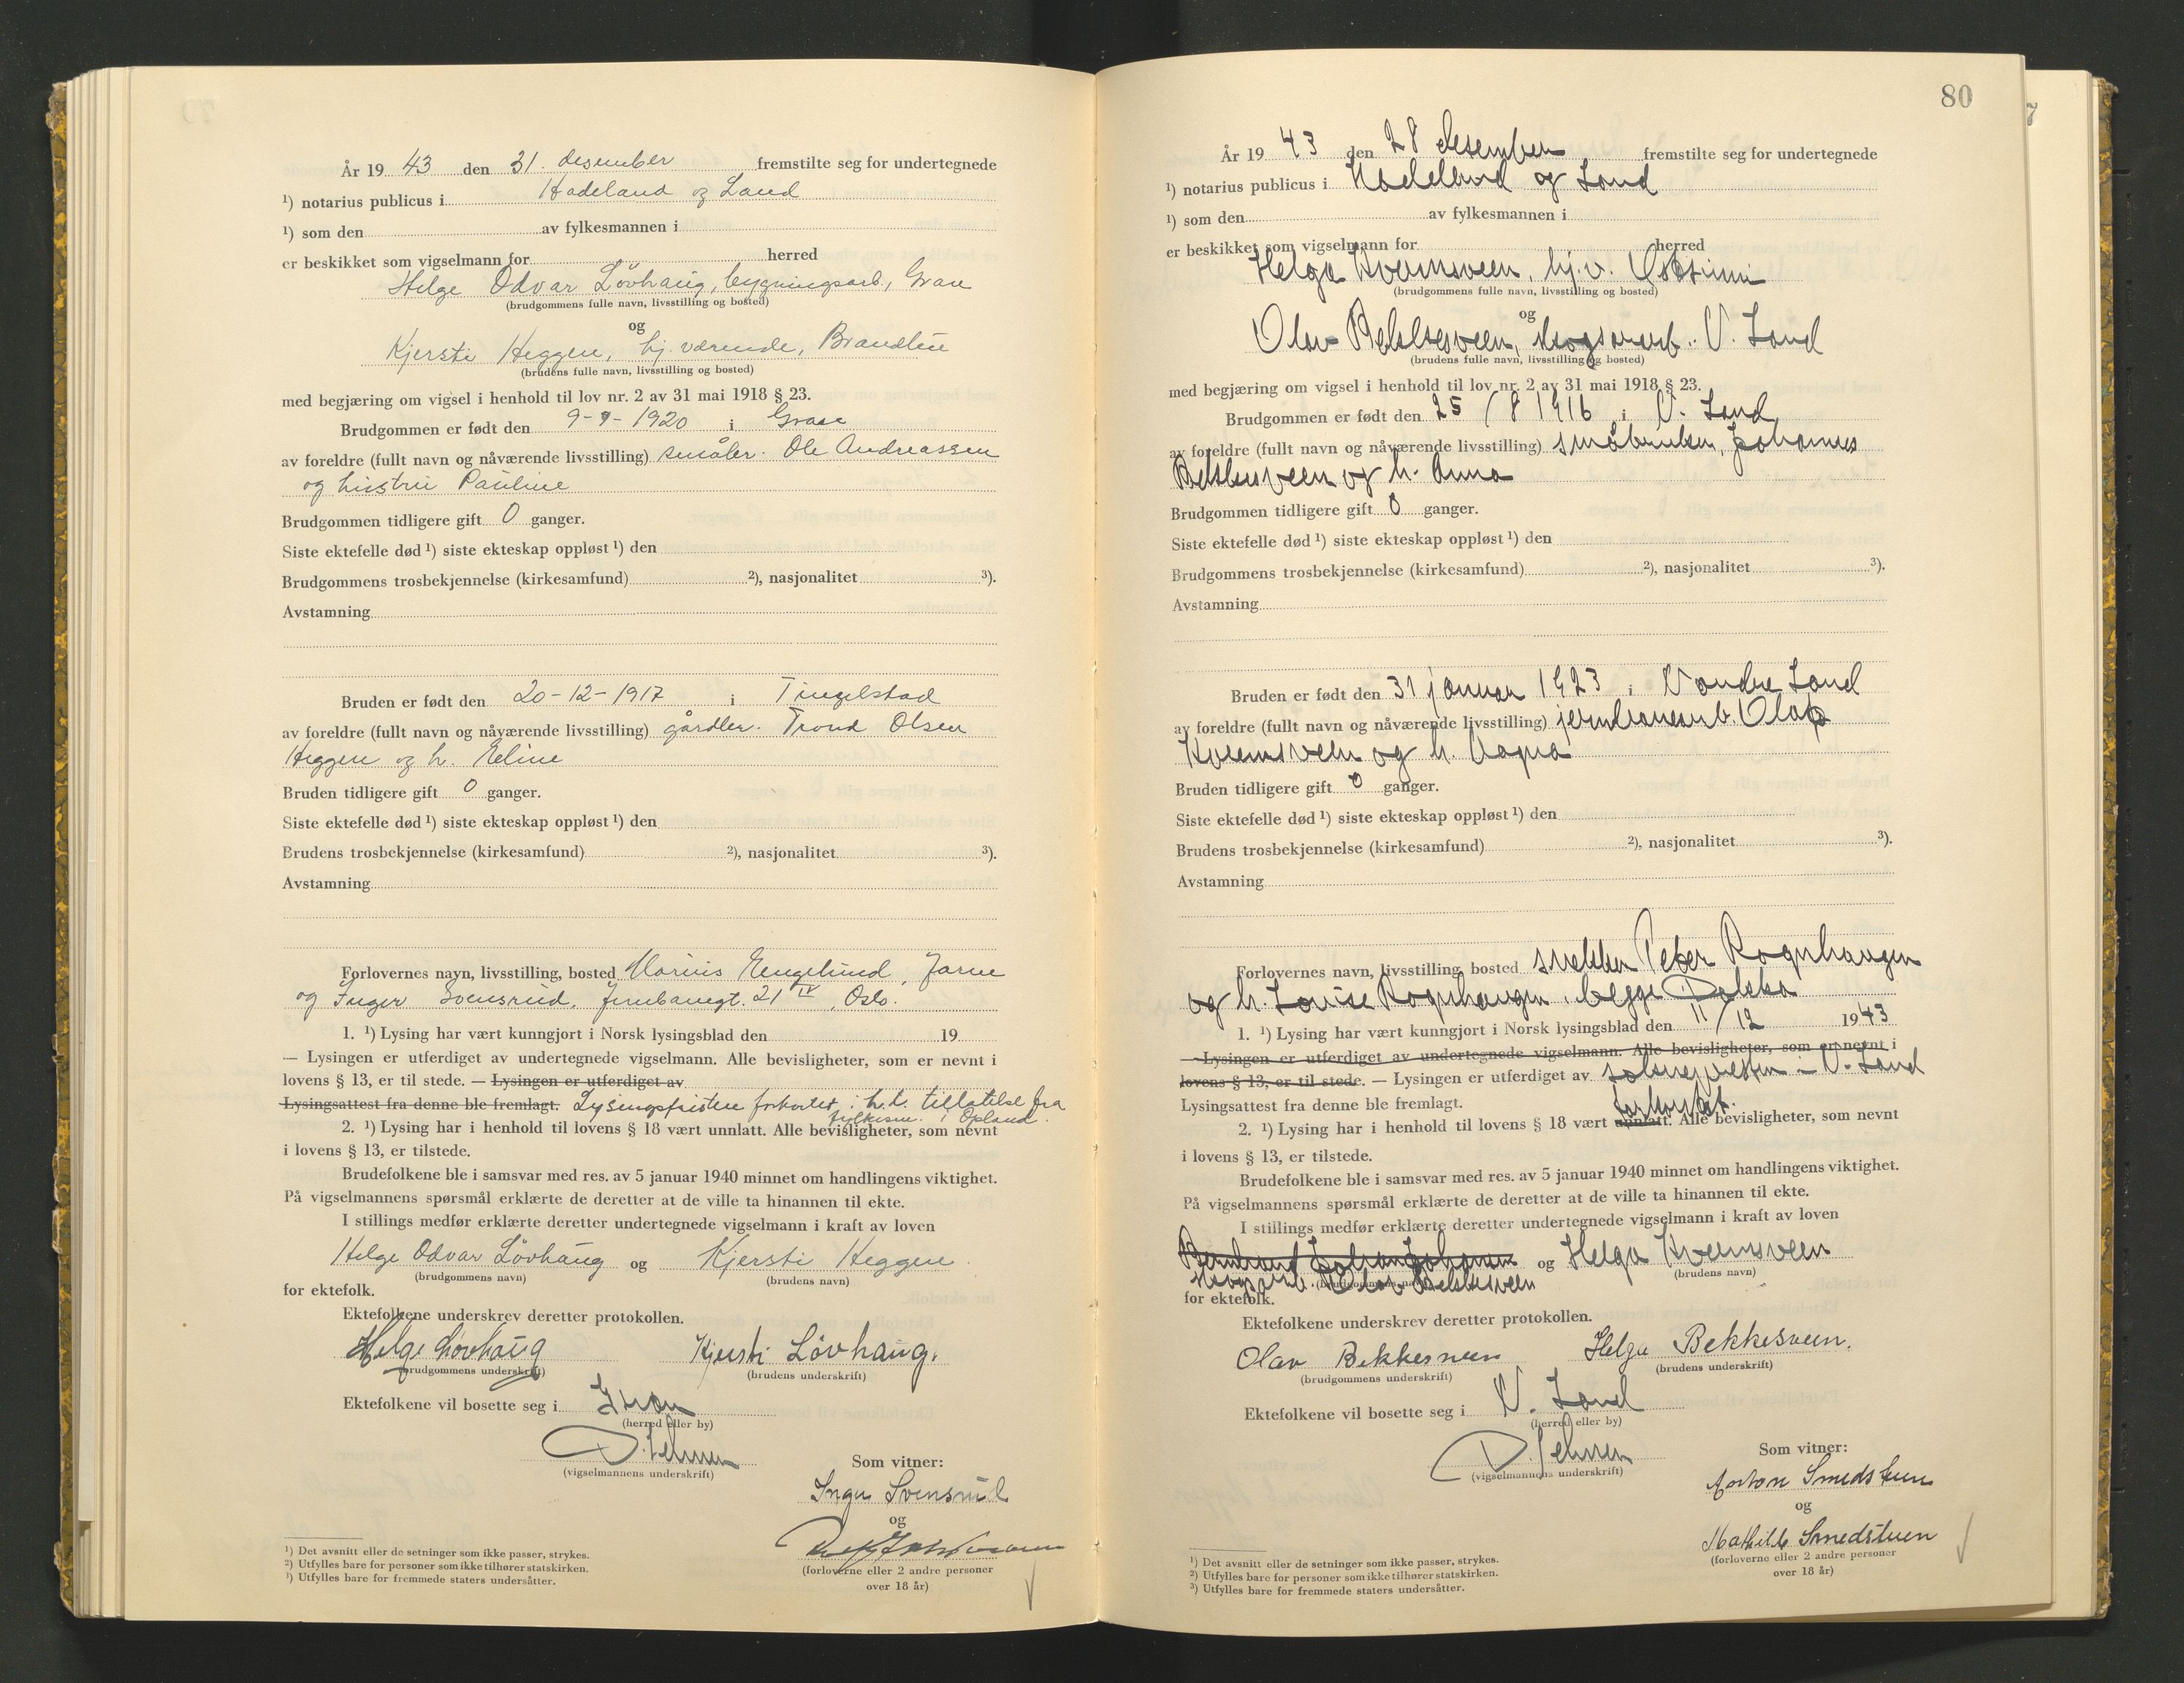 År 19 43 den 31. desember fremstilte seg for undertegnede
¹) notarius publicus i Hadeland og Land
¹) som den av fylkesmannen i
er beskikket som vigselmann for herred
Helge Odvar Lövhaug, bygningsarb., Gran
(brudgommens fulle navn, livsstilling og bosted)
og
Kjersti Heggen, hj. værende, Brandbu
(brudens fulle navn, livsstilling og bosted)
med begjæring om vigsel i henhold til lov nr. 2 av 31 mai 1918 § 23.
Brudgommen er født den 9-9-1920 i Gran
av foreldre (fullt navn og nåværende livsstilling) småbr. Ole Andreassen
og hustru Pauline
Brudgommen tidligere gift 0 ganger.
Siste ektefelle død ¹) siste ekteskap oppløst ¹) den
Brudgommens trosbekjennelse (kirkesamfund) ²), nasjonalitet ³).
Avstamning
Bruden er født den 20-12-1917 i Tingelstad
av foreldre (fullt navn og nåværende livsstilling) gårdbr. Trond Olsen
Heggen og h. Eline
Bruden tidligere gift 0 ganger.
Siste ektefelle død ¹) siste ekteskap oppløst ¹) den
Brudens trosbekjennelse (kirkesamfund) ²), nasjonalitet ³).
Avstamning
Forlovernes navn, livsstilling, bosted Marius Engelund, Jaren
og Inger Svensrud, 21 IV, Oslo.
1. ¹) Lysing har vært kunngjort i Norsk lysingsblad den 19
— Lysingen er utferdiget av undertegnede vigselmann. Alle bevisligheter, som er nevnt i
lovens § 13, er til stede. — Lysingen er utferdiget av
Lysingsattest fra denne ble fremlagt. Lysingsfristen forkortet i h.t. tillatelse fra
fylkesm. i Opland.
2. ¹) Lysing har i henhold til lovens § 18 vært unnlatt. Alle bevisligheter, som nevnt
i lovens § 13, er tilstede.
Brudefolkene ble i samsvar med res. av 5 januar 1940 minnet om handlingens viktighet.
På vigselmannens spørsmål erklærte de deretter at de ville ta hinannen til ekte.
I stillings medfør erklærte deretter undertegnede vigselmann i kraft av loven
Helge Odvar Lövhaug og Kjersti Heggen
(brudgommens navn) (brudens navn)
for ektefolk.
Ektefolkene underskrev deretter protokollen.
Helge Lövhaug Kjersti Lövhaug.
(brudgommens underskrift) (brudens underskrift)
Ektefolkene vil bosette seg i Gran
(herred eller by)
(vigselmannens underskrift)
Som vitner:
Inger Svensrud
og
(forloverne eller 2 andre personer
over 18 år)
¹) Det avsnitt eller de setninger som ikke passer, strykes.
²) Utfylles bare for personer som ikke tilhører statskirken.
³) Utfylles bare for fremmede staters undersåtter.
80
År 19 43 den 28 desember fremstilte seg for undertegnede
¹) notarius publicus i Hadeland og Land
¹) som den av fylkesmannen i
er beskikket som vigselmann for herred
Helga Kvemsveen, hj.v.
(brudgommens fulle navn, livsstilling og bosted)
og
Olav Bekkesveen, skogsarb. V. Land
(brudens fulle navn, livsstilling og bosted)
med begjæring om vigsel i henhold til lov nr. 2 av 31 mai 1918 § 23.
Brudgommen er født den 25/8 1916 i V. Land
av foreldre (fullt navn og nåværende livsstilling) småbruker Johannes
Bekkesveen og h. Anna
Brudgommen tidligere gift 0 ganger.
Siste ektefelle død ¹) siste ekteskap oppløst ¹) den
Brudgommens trosbekjennelse (kirkesamfund) ²), nasjonalitet ³).
Avstamning
Bruden er født den 31 januar 1923 i Nordre Land
av foreldre (fullt navn og nåværende livsstilling) jernbanearb. Olaf
Kvemsveen og h.
Bruden tidligere gift 0 ganger.
Siste ektefelle død ¹) siste ekteskap oppløst ¹) den
Brudens trosbekjennelse (kirkesamfund) ²), nasjonalitet ³).
Avstamning
Forlovernes navn, livsstilling, bosted snekker Peter Rognhaugen
og h. Louise Rognhaugen, begge Dokka
1. ¹) Lysing har vært kunngjort i Norsk lysingsblad den 11/12 1943
— Lysingen er utferdiget av undertegnede vigselmann. Alle bevisligheter, som er nevnt i
lovens § 13, er til stede. — Lysingen er utferdiget av soknepresten i V. Land
Lysingsattest fra denne ble fremlagt.
forkortet.
2. ¹) Lysing har i henhold til lovens § 18 vært unnlatt. Alle bevisligheter, som nevnt
i lovens § 13, er tilstede.
Brudefolkene ble i samsvar med res. av 5 januar 1940 minnet om handlingens viktighet.
På vigselmannens spørsmål erklærte de deretter at de ville ta hinannen til ekte.
I stillings medfør erklærte deretter undertegnede vigselmann i kraft av loven
og Helga Kvemsveen
(brudgommens navn) (brudens navn)
skogsarb. Olav Bekkesveen
for ektefolk.
Ektefolkene underskrev deretter protokollen.
Olav Bekkesveen Helga Bekkesveen.
(brudgommens underskrift) (brudens underskrift)
Ektefolkene vil bosette seg i V. Land
(herred eller by)
(vigselmannens underskrift)
Som vitner:
Anton Smedstuen
og
Mathilde Smedstuen
(forloverne eller 2 andre personer
over 18 år)
¹) Det avsnitt eller de setninger som ikke passer, strykes.
²) Utfylles bare for personer som ikke tilhører statskirken.
³) Utfylles bare for fremmede staters undersåtter.